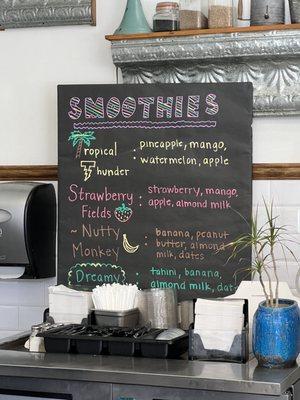 SMOOTHIES
Tropical Thunder : pineapple, mango,
watermelon, apple
Strawberry Fields : strawberry, mango,
apple, almond milk
~ Nutty Monkey : banana, peanut
butter, almond
milk, dates
Dreamy : tahini, banana,
almond milk, dat